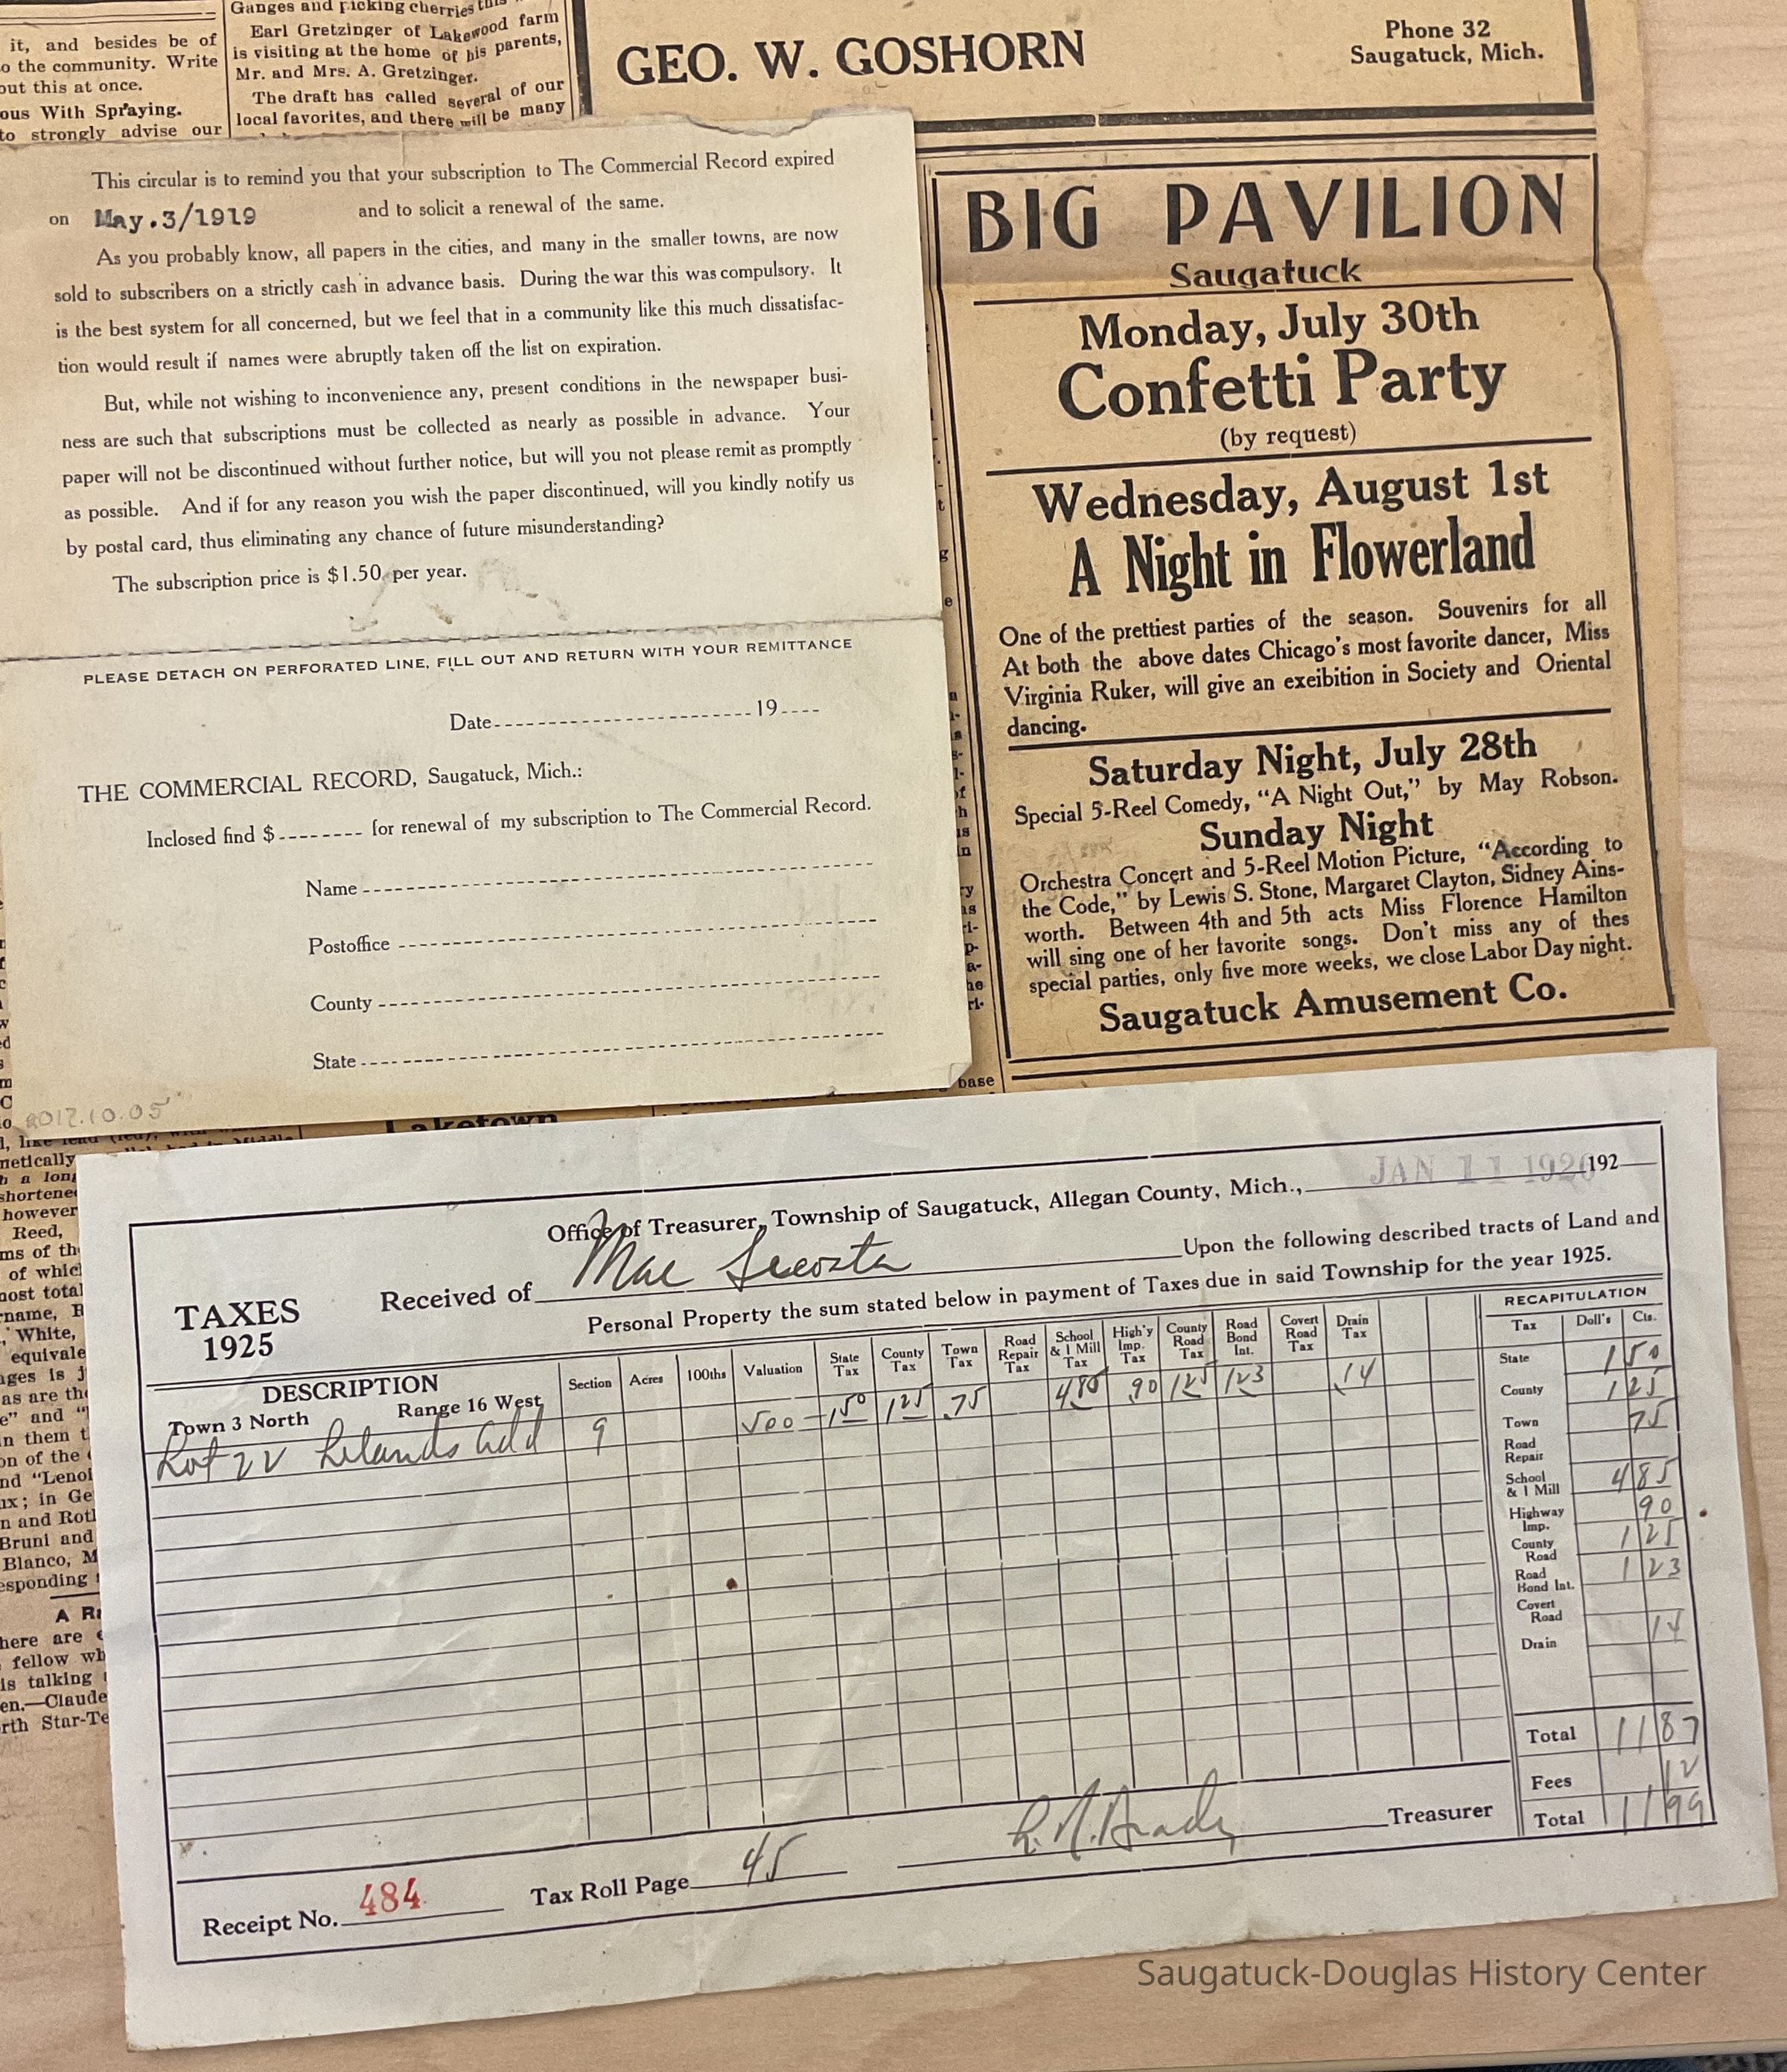 it, and besides be of
to the community. Write
out this at once.
ous With Spraying.
to strongly advise our
Ganges and picking cherries this
Earl Gretzinger of Lakewood farm
is visiting at the home of his parents,
Mr. and Mrs. A. Gretzinger.
The draft has called several of our
local favorites, and there will be many
GEO. W. GOSHORN
Phone 32
Saugatuck, Mich.
This circular is to remind you that your subscription to The Commercial Record expired
on May.3/1919 and to solicit a renewal of the same.
As you probably know, all papers in the cities, and many in the smaller towns, are now
sold to subscribers on a strictly cash in advance basis. During the war this was compulsory. It
is the best system for all concerned, but we feel that in a community like this much dissatisfac-
tion would result if names were abruptly taken off the list on expiration.
But, while not wishing to inconvenience any, present conditions in the newspaper busi-
ness are such that subscriptions must be collected as nearly as possible in advance. Your
paper will not be discontinued without further notice, but will you not please remit as promptly
as possible. And if for any reason you wish the paper discontinued, will you kindly notify us
by postal card, thus eliminating any chance of future misunderstanding?
The subscription price is $1.50 per year.
PLEASE DETACH ON PERFORATED LINE, FILL OUT AND RETURN WITH YOUR REMITTANCE
Date 19
THE COMMERCIAL RECORD, Saugatuck, Mich.:
Inclosed find $ for renewal of my subscription to The Commercial Record.
Name
Postoffice
County
State
2017.10.05
BIG PAVILION
Saugatuck
Monday, July 30th
Confetti Party
(by request)
Wednesday, August 1st
A Night in Flowerland
One of the prettiest parties of the season. Souvenirs for all
At both the above dates Chicago's most favorite dancer, Miss
Virginia Ruker, will give an exeibition in Society and Oriental
dancing.
Saturday Night, July 28th
Special 5-Reel Comedy, "A Night Out," by May Robson.
Sunday Night
Orchestra Concert and 5-Reel Motion Picture, "According to
the Code," by Lewis S. Stone, Margaret Clayton, Sidney Ains-
worth. Between 4th and 5th acts Miss Florence Hamilton
will sing one of her favorite songs. Don't miss any of thes
special parties, only five more weeks, we close Labor Day night.
Saugatuck Amusement Co.
base
Laketown
netically
a long
shortene
however
Reed,
ms of th
of whic
most total
rname, B
White,
equivale
ages is j
as are the
e" and "
n them t
on of the
nd "Lenoi
ux; in Ge
n and Roth
Bruni and
Blanco, M
esponding
A R
here are
fellow wh
is talking
en.—Claude
rth Star-Te
Office of Treasurer, Township of Saugatuck, Allegan County, Mich., JAN 11 1926 192
TAXES
1925
Received of Mae Upon the following described tracts of Land and
Personal Property the sum stated below in payment of Taxes due in said Township for the year 1925.
DESCRIPTION
Town 3 North Range 16 West
Section Acres 100ths Valuation State Tax County Tax Town Tax Road Repair Tax School & 1 Mill Tax High'y Imp. Tax County Road Tax Road Bond Int. Covert Road Tax Drain Tax
Lot 22 Lelands Add 9 500 1 50 1 25 .75 4 85 .90 1 25 1 23 .14
RECAPITULATION
Tax Doll's Cts.
State 1 50
County 1 25
Town 75
Road Repair
School & 1 Mill 4 85
Highway Imp. 90
County Road 1 25
Road Bond Int. 1 23
Covert Road
Drain 14
Total 11 87
Fees 12
Total 11 99
Treasurer
Receipt No. 484 Tax Roll Page 45
Saugatuck-Douglas History Center